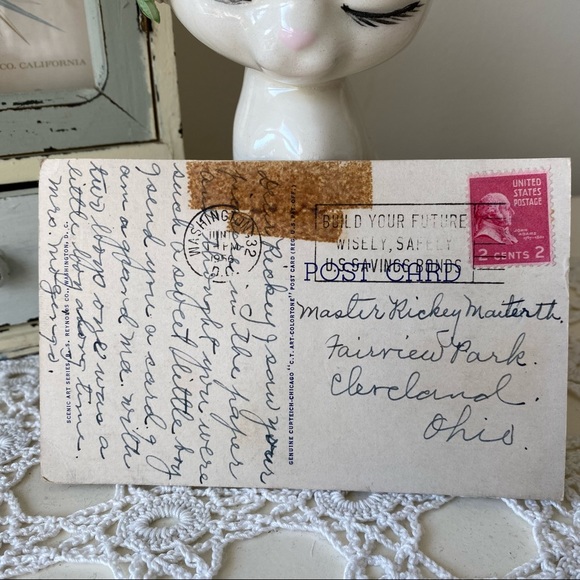 CO. CALIFORNIA
Dear Rickey, I saw your
in the paper
thought you were
such a sweet little boy
I send you a card. I
am a grand ma. with
two boys one was a
little boy long time.
SCENIC ART SERIES, B. S. REYNOLDS CO., WASHINGTON, D. C.
WASHINGTON 32
JUN
1 PM
195
D.C.
BUILD YOUR FUTURE
WISELY, SAFELY
U.S SAVINGS BONDS
UNITED
STATES
POSTAGE
JOHN ADAMS
2 CENTS 2
POST CARD
GENUINE CURTEICH-CHICAGO "C.T. ART-COLORTONE" POST CARD (REG. U.S. PAT. OFF.)
Master Rickey
Fairview Park.
Cleveland.
Ohio.